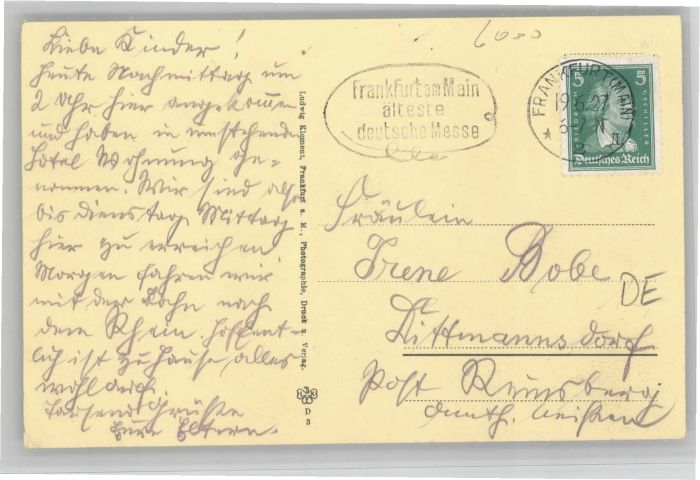 Liebe Kinder!
heute Nachmittag um
2 Uhr hier angekommen
und haben in umstehend.
Hotel Wohnung ge-
nommen. Wir sind also
bis Dienstag Mittag
hier zu erreichen
Morgen fahren wir
mit der Bahn nach
dem Rhein. Hoffent-
lich ist zuhause alles
wohlauf.
Tausend Grüße
Eure Eltern.
Ludwig Klement, Frankfurt a. M., Photographie, Druck u. Verlag.
D 8
Frankfurt am Main
älteste
deutsche Messe
FRANKFURT (MAIN)
19.6.27
5 5
FRIEDRICH V. SCHILLER
Deutsches Reich
Fräulein
Irene Bobe
DE
Dittmannsdorf
Post